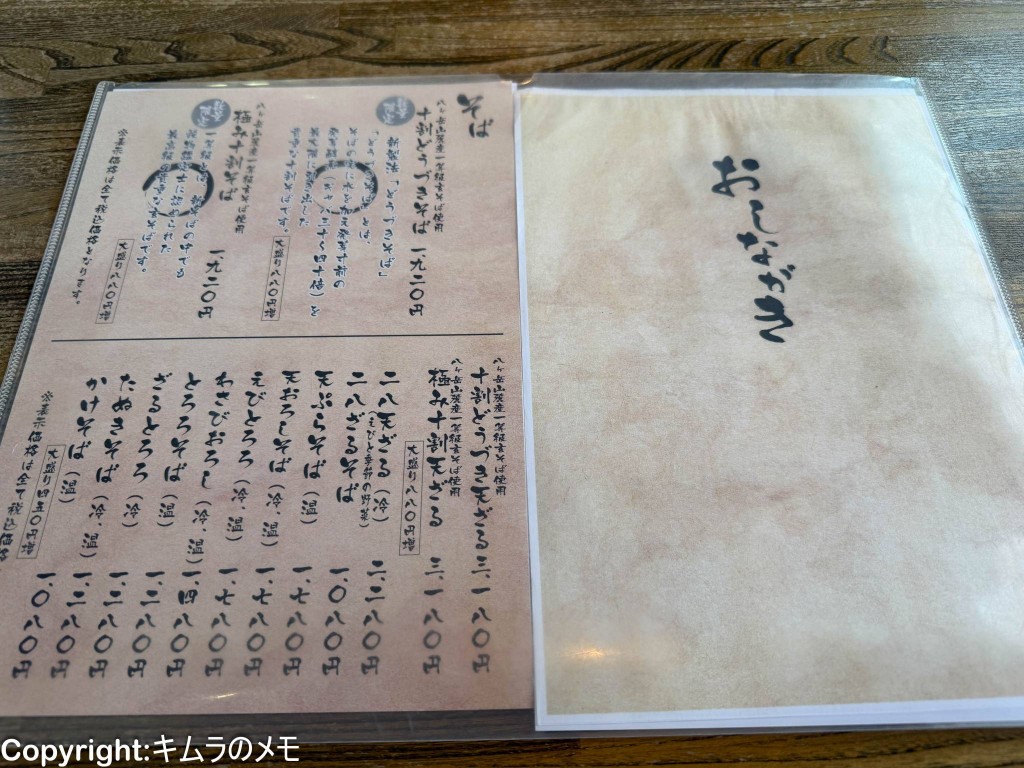 おしながき
そば
八ヶ岳山麓産一等級玄そば使用
十割どうづきそば 一、九二〇円
大盛り八八〇円増
八ヶ岳山麓産一等級玄そば使用
極み十割そば 一、九二〇円
大盛り八八〇円増
※表示価格は全て税込価格となります。
八ヶ岳山麓産一等級玄そば使用
十割どうづき天ざる 三、一八〇円
八ヶ岳山麓産一等級玄そば使用
極み十割天ざる 三、一八〇円
大盛り八八〇円増
二八天ざる(冷) 二、二八〇円
(えびと季節の野菜)
二八ざるそば 一、〇八〇円
天ぷらそば(温) 一、七八〇円
天おろしそば(冷、温) 一、七八〇円
えびとろろ(冷、温) 一、七八〇円
わさびおろし(冷、温) 一、四八〇円
とろろそば(温) 一、二八〇円
ざるとろろ(冷) 一、二八〇円
たぬきそば(冷、温) 一、二八〇円
かけそば(温) 一、〇八〇円
大盛り四五〇円増
※表示価格は全て税込価格
Copyright:キムラのメモ